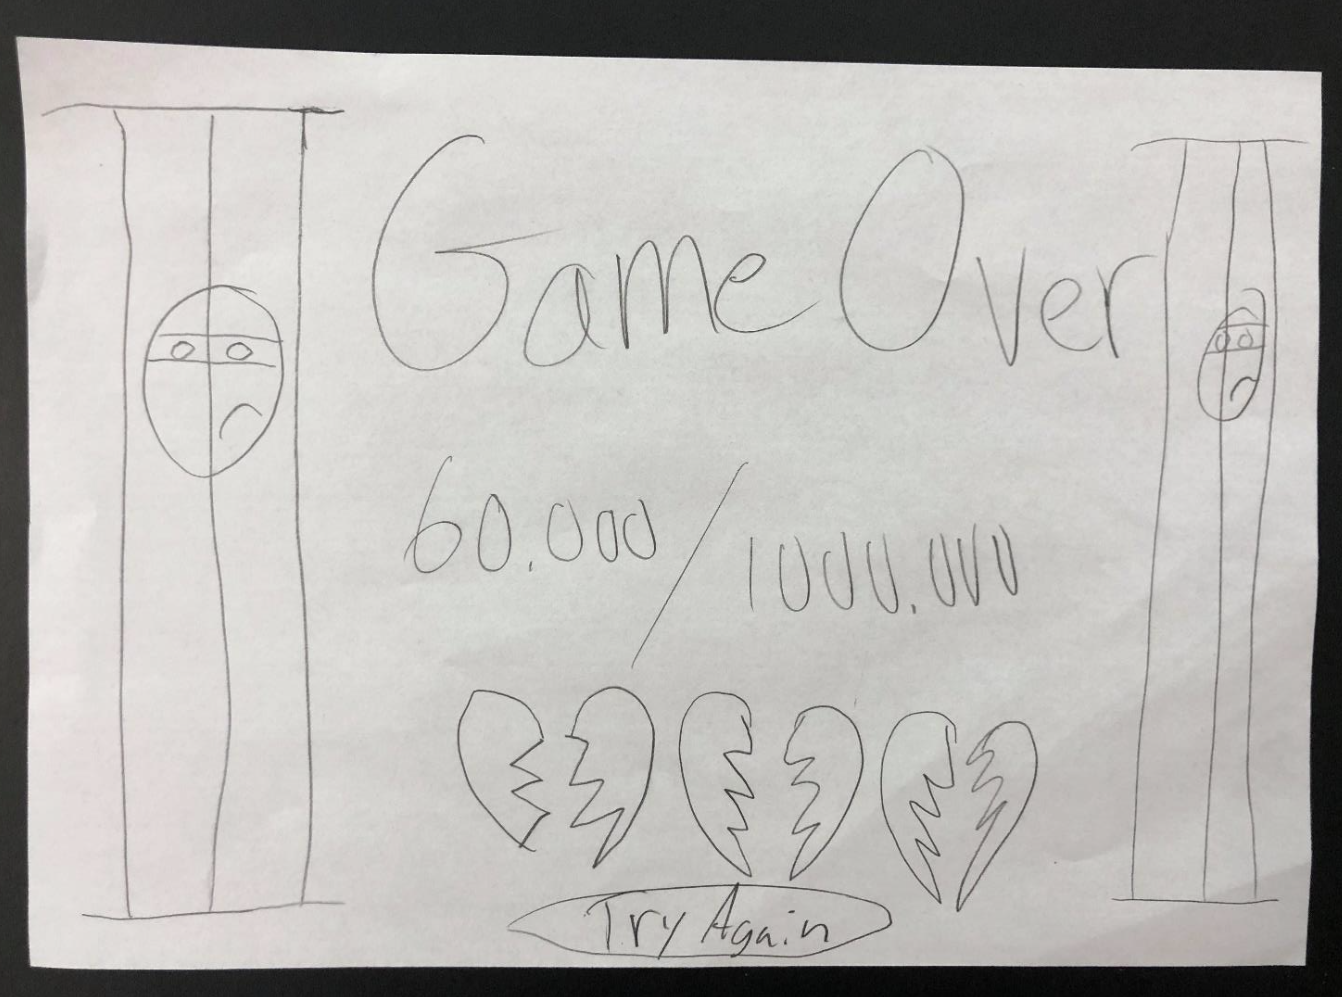 Game Over
60.000/1000.000
Try Again